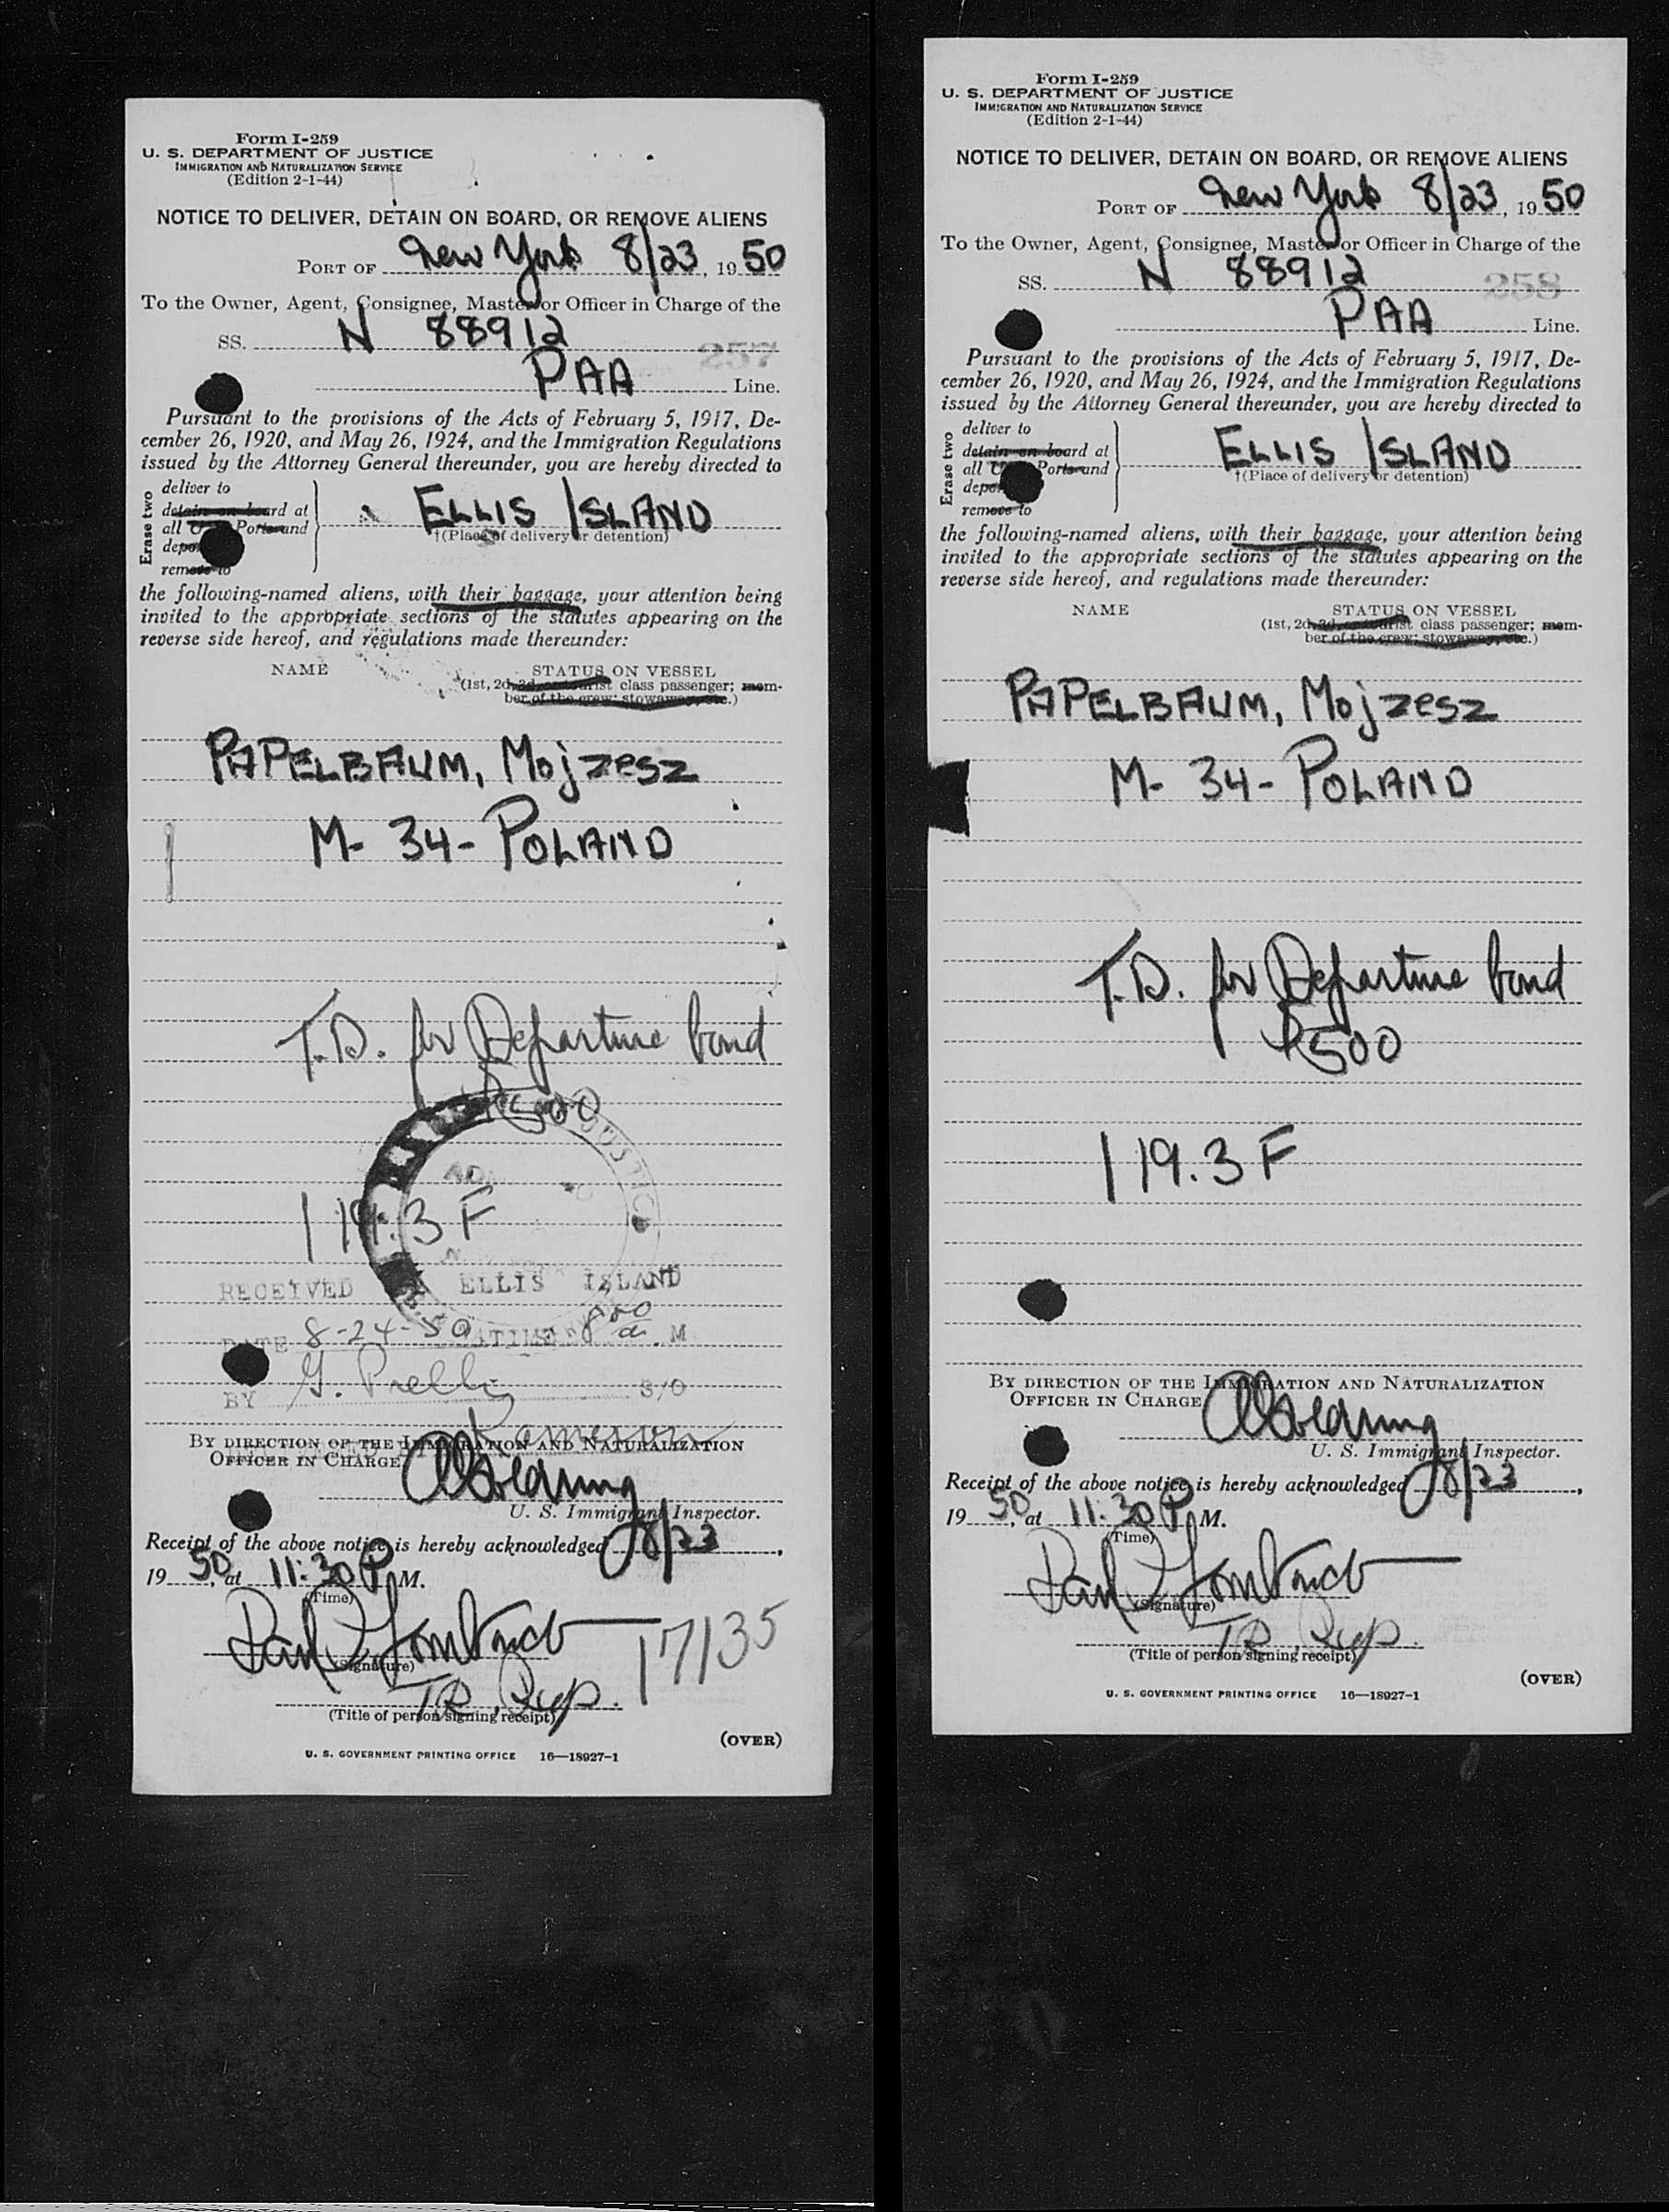 Form I-259
U. S. DEPARTMENT OF JUSTICE
IMMIGRATION AND NATURALIZATION SERVICE
(Edition 2-1-44)
NOTICE TO DELIVER, DETAIN ON BOARD, OR REMOVE ALIENS
PORT OF New York 8/23, 19 50
To the Owner, Agent, Consignee, Master or Officer in Charge of the
SS. N 88912
257
PAA Line.
Pursuant to the provisions of the Acts of February 5, 1917, De-
cember 26, 1920, and May 26, 1924, and the Immigration Regulations
issued by the Attorney General thereunder, you are hereby directed to
Erase two
deliver to
detain on board at
all Ports and
remove to
ELLIS ISLAND
†(Place of delivery or detention)
the following-named aliens, with their baggage, your attention being
invited to the appropriate sections of the statutes appearing on the
reverse side hereof, and regulations made thereunder:
NAME STATUS ON VESSEL
(1st, 2d, 3d, or tourist class passenger; mem-
ber of the crew; stowaway, etc.)
PAPELBAUM, Mojzesz
M- 34- POLAND
T.D. for Departure bond
$500
119.3 F
RECEIVED ELLIS ISLAND
DATE 8-24-50 TIME 8 00 a. M
BY G. S/O
BY DIRECTION OF THE IMMIGRATION AND NATURALIZATION
OFFICER IN CHARGE
U. S. Immigrant Inspector.
Receipt of the above notice is hereby acknowledged 8/23,
19 50, at 11:30 P M.
(Time)
(Signature)
17135
TR. Rep.
(Title of person signing receipt)
(OVER)
U. S. GOVERNMENT PRINTING OFFICE 16—18927-1
Form I-259
U. S. DEPARTMENT OF JUSTICE
IMMIGRATION AND NATURALIZATION SERVICE
(Edition 2-1-44)
NOTICE TO DELIVER, DETAIN ON BOARD, OR REMOVE ALIENS
PORT OF New York 8/23, 19 50
To the Owner, Agent, Consignee, Master or Officer in Charge of the
SS. N 88912
258
PAA Line.
Pursuant to the provisions of the Acts of February 5, 1917, De-
cember 26, 1920, and May 26, 1924, and the Immigration Regulations
issued by the Attorney General thereunder, you are hereby directed to
Erase two
deliver to
detain on board at
all Ports and
remove to
ELLIS ISLAND
†(Place of delivery or detention)
the following-named aliens, with their baggage, your attention being
invited to the appropriate sections of the statutes appearing on the
reverse side hereof, and regulations made thereunder:
NAME STATUS ON VESSEL
(1st, 2d, 3d, or tourist class passenger; mem-
ber of the crew; stowaway, etc.)
PAPELBAUM, Mojzesz
M- 34- POLAND
T.D. for Departure bond
$500
119.3 F
BY DIRECTION OF THE IMMIGRATION AND NATURALIZATION
OFFICER IN CHARGE
U. S. Immigrant Inspector.
Receipt of the above notice is hereby acknowledged 8/23,
19 50, at 11:30 P M.
(Time)
(Signature)
TR. Rep.
(Title of person signing receipt)
(OVER)
U. S. GOVERNMENT PRINTING OFFICE 16—18927-1